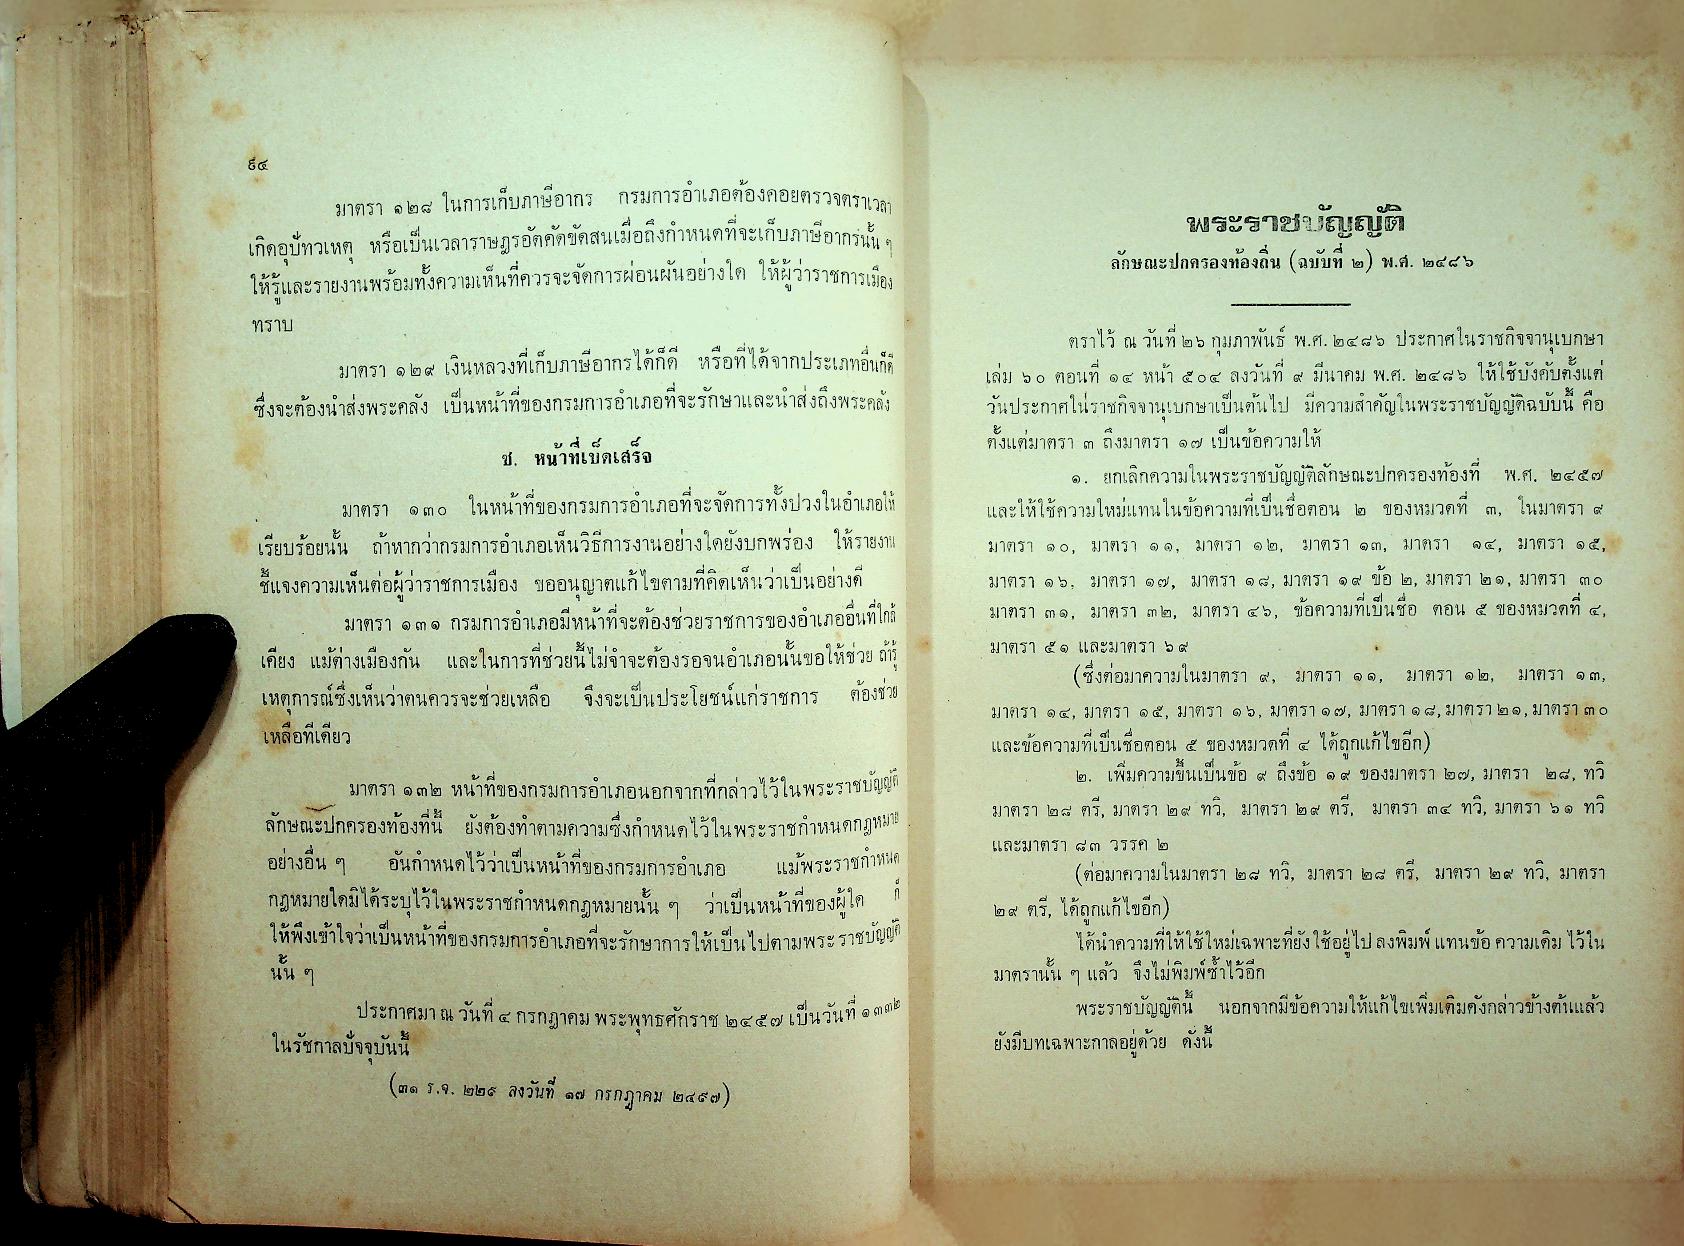 ๕๔
มาตรา ๑๒๘ ในการเก็บภาษีอากร กรมการอำเภอต้องคอยตรวจตราเวลา
เกิดอุปัทวเหตุ หรือเป็นเวลาราษฎรอัตคัดขัดสนเมื่อถึงกำหนดที่จะเก็บภาษีอากรนั้น ๆ
ให้รู้และรายงานพร้อมทั้งความเห็นที่ควรจะจัดการผ่อนผันอย่างใด ให้ผู้ว่าราชการเมือง
ทราบ
มาตรา ๑๒๙ เงินหลวงที่เก็บภาษีอากรได้ก็ดี หรือที่ได้จากประเภทอื่นก็ดี
ซึ่งจะต้องนำส่งพระคลัง เป็นหน้าที่ของกรมการอำเภอที่จะรักษาและนำส่งถึงพระคลัง
ช. หน้าที่เบ็ดเสร็จ
มาตรา ๑๓๐ ในหน้าที่ของกรมการอำเภอที่จะจัดการทั้งปวงในอำเภอให้
เรียบร้อยนั้น ถ้าหากว่ากรมการอำเภอเห็นวิธีการงานอย่างใดยังบกพร่อง ให้รายงาน
ชี้แจงความเห็นต่อผู้ว่าราชการเมือง ขออนุญาตแก้ไขตามที่คิดเห็นว่าเป็นอย่างดี
มาตรา ๑๓๑ กรมการอำเภอมีหน้าที่จะต้องช่วยราชการของอำเภออื่นที่ใกล้
เคียง แม้ต่างเมืองกัน และในการที่ช่วยนี้ไม่จำจะต้องรอจนอำเภอนั้นขอให้ช่วย ถ้ารู้
เหตุการณ์ซึ่งเห็นว่าตนควรจะช่วยเหลือ จึงจะเป็นประโยชน์แก่ราชการ ต้องช่วย
เหลือทีเดียว
มาตรา ๑๓๒ หน้าที่ของกรมการอำเภอนอกจากที่กล่าวไว้ในพระราชบัญญัติ
ลักษณะปกครองท้องที่นี้ ยังต้องทำตามความซึ่งกำหนดไว้ในพระราชกำหนดกฎหมาย
อย่างอื่น ๆ อันกำหนดไว้ว่าเป็นหน้าที่ของกรมการอำเภอ แม้พระราชกำหนด
กฎหมายใดมิได้ระบุไว้ในพระราชกำหนดกฎหมายนั้น ๆ ว่าเป็นหน้าที่ของผู้ใด ก็
ให้พึงเข้าใจว่าเป็นหน้าที่ของกรมการอำเภอที่จะรักษาการให้เป็นไปตามพระราชบัญญัติ
นั้น ๆ
ประกาศมา ณ วันที่ ๔ กรกฎาคม พระพุทธศักราช ๒๔๕๗ เป็นวันที่ ๑๓๓๒
ในรัชกาลปัจจุบันนี้
(๓๑ ร.จ. ๒๒๙ ลงวันที่ ๑๗ กรกฎาคม ๒๔๕๗)
พระราชบัญญัติ
ลักษณะปกครองท้องถิ่น (ฉบับที่ ๒) พ.ศ. ๒๔๘๖
ตราไว้ ณ วันที่ ๒๖ กุมภาพันธ์ พ.ศ. ๒๔๘๖ ประกาศในราชกิจจานุเบกษา
เล่ม ๖๐ ตอนที่ ๑๔ หน้า ๕๐๔ ลงวันที่ ๙ มีนาคม พ.ศ. ๒๔๘๖ ให้ใช้บังคับตั้งแต่
วันประกาศในราชกิจจานุเบกษาเป็นต้นไป มีความสำคัญในพระราชบัญญัติฉบับนี้ คือ
ตั้งแต่มาตรา ๓ ถึงมาตรา ๑๗ เป็นข้อความให้
๑. ยกเลิกความในพระราชบัญญัติลักษณะปกครองท้องที่ พ.ศ. ๒๔๕๗
และให้ใช้ความใหม่แทนในข้อความที่เป็นชื่อตอน ๒ ของหมวดที่ ๓, ในมาตรา ๙
มาตรา ๑๐, มาตรา ๑๑, มาตรา ๑๒, มาตรา ๑๓, มาตรา ๑๔, มาตรา ๑๕,
มาตรา ๑๖, มาตรา ๑๗, มาตรา ๑๘, มาตรา ๑๙ ข้อ ๒, มาตรา ๒๑, มาตรา ๓๐
มาตรา ๓๑, มาตรา ๓๒, มาตรา ๔๖, ข้อความที่เป็นชื่อ ตอน ๕ ของหมวดที่ ๔,
มาตรา ๕๑ และมาตรา ๖๙
(ซึ่งต่อมาความในมาตรา ๙, มาตรา ๑๑, มาตรา ๑๒, มาตรา ๑๓,
มาตรา ๑๔, มาตรา ๑๕, มาตรา ๑๖, มาตรา ๑๗, มาตรา ๑๘, มาตรา ๒๑, มาตรา ๓๐
และข้อความที่เป็นชื่อตอน ๕ ของหมวดที่ ๔ ได้ถูกแก้ไขอีก)
๒. เพิ่มความขึ้นเป็นข้อ ๙ ถึงข้อ ๑๙ ของมาตรา ๒๗, มาตรา ๒๘, ทวิ
มาตรา ๒๘ ตรี, มาตรา ๒๙ ทวิ, มาตรา ๒๙ ตรี, มาตรา ๓๔ ทวิ, มาตรา ๖๑ ทวิ
และมาตรา ๘๓ วรรค ๒
(ต่อมาความในมาตรา ๒๘ ทวิ, มาตรา ๒๘ ตรี, มาตรา ๒๙ ทวิ, มาตรา
๒๙ ตรี, ได้ถูกแก้ไขอีก)
ได้นำความที่ให้ใช้ใหม่เฉพาะที่ยัง ใช้อยู่ไป ลงพิมพ์ แทนข้อ ความเดิม ไว้ใน
มาตรานั้น ๆ แล้ว จึงไม่พิมพ์ซ้ำไว้อีก
พระราชบัญญัตินี้ นอกจากมีข้อความให้แก้ไขเพิ่มเติมดังกล่าวข้างต้นแล้ว
ยังมีบทเฉพาะกาลอยู่ด้วย ดั่งนี้